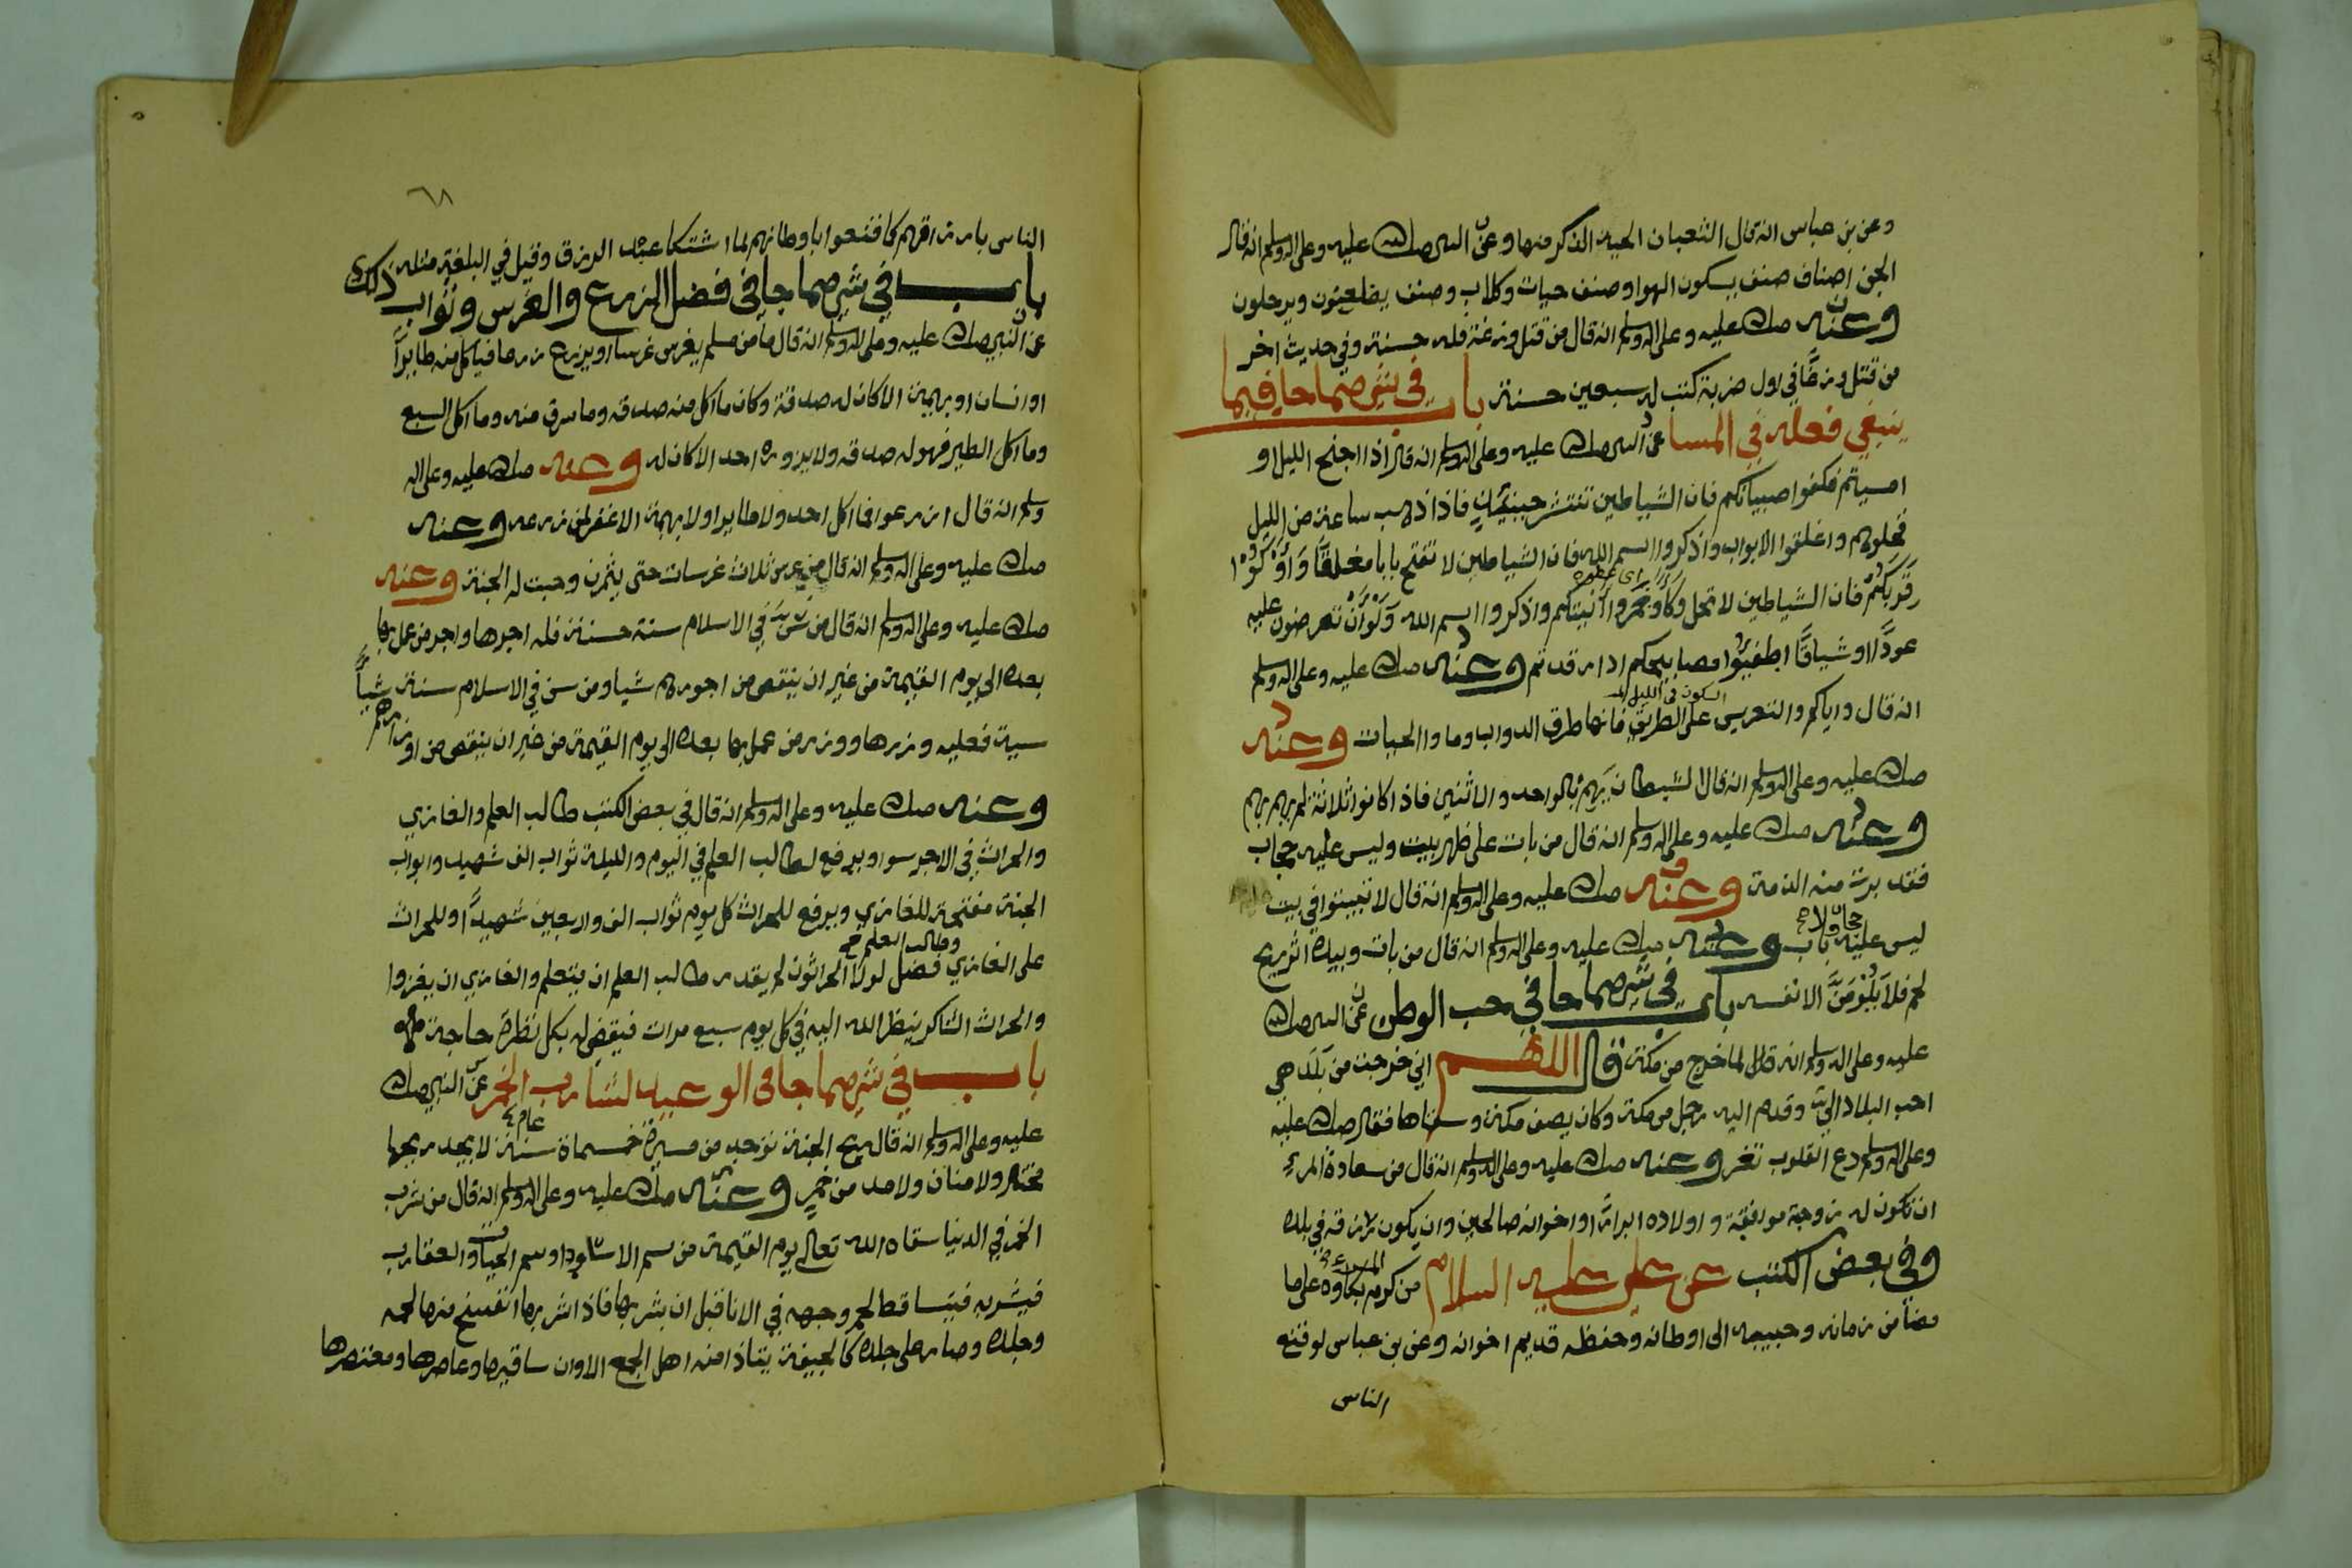 وعن بن عباس انه قال الثعبان الحية الذكر منها وعن النبي صلى الله عليه وعلى اله وسلم انه قال
الجن اصناف صنف يسكون الهوا وصنف حيات وكلاب وصنف يضلعنون ويرحلون
وعنه صلى الله عليه وعلى اله وسلم انه قال من قتل وزغة فله حسنة وفي حديث اخر
من قتل وزغًا في اول ضربة كتب له سبعين حسنة باب في شي مما جا فيما
ينبغي فعله في المسا عن النبي صلى الله عليه وعلى اله وسلم انه قال اذا اجنح الليل او
امسيتم فكفوا صبيانكم فان الشياطين تنتشر حينئذٍ فاذا ذهب ساعة من الليل
فخلوهم واغلقوا الابواب واذكروا اسم الله فان الشياطين لا تفتح بابا مغلقًا وَاَوْكُوْا
قِرَبَكُمْ فان الشياطين لا تحل وكاًء وخمروا آنيتكم واذكروا اسم الله وَلَوْاَنْ تعرضون عليه
عودًا او شياقًا اطفيُوا مصابيحكم اذا رقدتم وعنه صلى الله عليه وعلى اله وسلم
انه قال واياكم والتعريس على الطريق فانها طرق الدواب وماوا الحيات وعنه
السكون في الليل
صلى الله عليه وعلى اله وسلم انه قال الشيطان يَهِمُّ بالواحد والاثنين فاذا كانوا ثلاثة لم يهم بهم
وعنه صلى الله عليه وعلى اله وسلم انه قال من بات على ظهر بيت وليس عليه حجاب
فقد برت منه الذمة وعنه صلى الله عليه وعلى اله وسلم انه قال لا تبيتوا في بيت
ليس عليه باب وعنه صلى الله عليه وعلى اله وسلم انه قال من بات وبيده اثر ريح
حجاب ولا
لحم فلا يَلُوْمَنَّ الا نفسه باب في شي مما جا في حب الوطن عن النبي صلى الله
عليه وعلى اله وسلم انه قال لما خرج من مكة قال اللهم اني خرجت من بَلَد هي
احب البلاد اليّ وقدم اليه رجل من مكة وكان يصف مكة وسناها فقال صلى الله عليه
وعلى اله وسلم دع القلوب تقر وعنه صلى الله عليه وعلى اله وسلم انه قال من سعادة المرءِ
ان تكون له زوجة موافقة واولاده ابرارًا واخوانه صالحين وان يكون رزقه في بلده
وفي بعض الكتب عن علي عليه السلام من كرم بكاوه على ما
المرء
مضا من زمانه وحبيبه الى اوطانه وحفظه قديم اخوانه وعن بن عباس لو قنع
الناس
٦٨
الناس بارزاقهم كما قنعوا باوطانهم لما اشتكا عبد الرزق وقيل في البلغية مثله ذلك
باب في شي مما جا في فضل الزرع والغرس وثواب
عن النبي صلى الله عليه وعلى اله وسلم انه قال ما من مسلم يغرس غرسا او يزرع زرعا فياكل منه طايرًا
او انسان او بهيمة الا كان له صدقة وكان ما اكل منه صدقه وما سرق منه وما اكل السبع
وما اكل الطير فهو له صدقه ولا يرزوه احد الا كان له وعنه صلى الله عليه وعلى اله
وسلم انه قال ازرعوا فما اكل احد ولا طايرا ولا بهيمة الا غفر لمن زرعه وعنه
صلى الله عليه وعلى اله وسلم انه قال من غرس ثلاث غرسات حتى يثمرن وجبت له الجنة وعنه
صلى الله عليه وعلى اله وسلم انه قال من سَنَّ في الاسلام سنة حسنة فله اجرها واجر من عمل بها
بعده الى يوم القيمة من غير ان ينتقص من اجورهم شيا ومن سن في الاسلام سنة
سية فعليه وزرها ووزر من عمل بها بعده الى يوم القيمة من غير ان ينقص من اوزارهم شياًّ
وعنه صلى الله عليه وعلى اله وسلم انه قال في بعض الكتب طالب العلم والغازي
والحراث في الاجر سوا ويرفع لطالب العلم في اليوم والليلة ثواب الف شهيد وابواب
الجنة مفتحة للغازي ويرفع للحراث كل يوم ثواب الف واربعين شهيدًا وللحراث
على الغازي فضل لولا الحراثون لم يقدر طالب العلم ان يتعلم والغازي ان يغزوا
وطالب العلم
والحراث الشاكر ينظر الله اليه في كل يوم سبع مرات فيقضي له بكل نظرة حاجة
باب في شي مما جا في الوعيد لشارب الخمر عن النبي صلى الله
عليه وعلى اله وسلم انه قال ريح الجنة توجد من مسيرة خمسماة سنة لا يجد ريحها
عام
مختال ولا منان ولا مدمن خمرٍ وعنه صلى الله عليه وعلى اله وسلم انه قال من شرب
الخمر في الدنيا سقاه الله تعالى يوم القيمة من سم الاساود او سم الحيات والعقارب
فيشربه فيتساقط لحم وجهه في الانا قبل ان يشربها فاذا شربها انفسخ منها لحمه
وجلده وصار على جلده كالجيفة يتاذا منه اهل الجمع الا وان ساقيها وعاصرها ومعتصرها